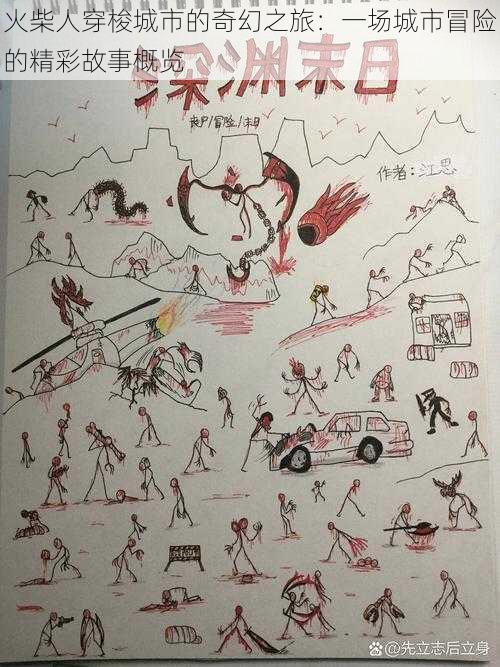 火柴人穿梭城市的奇幻之旅：一场城市冒险
的精彩故事概览
深渊末日
丧尸/冒险/末日
作者：江思
@先立志后立身